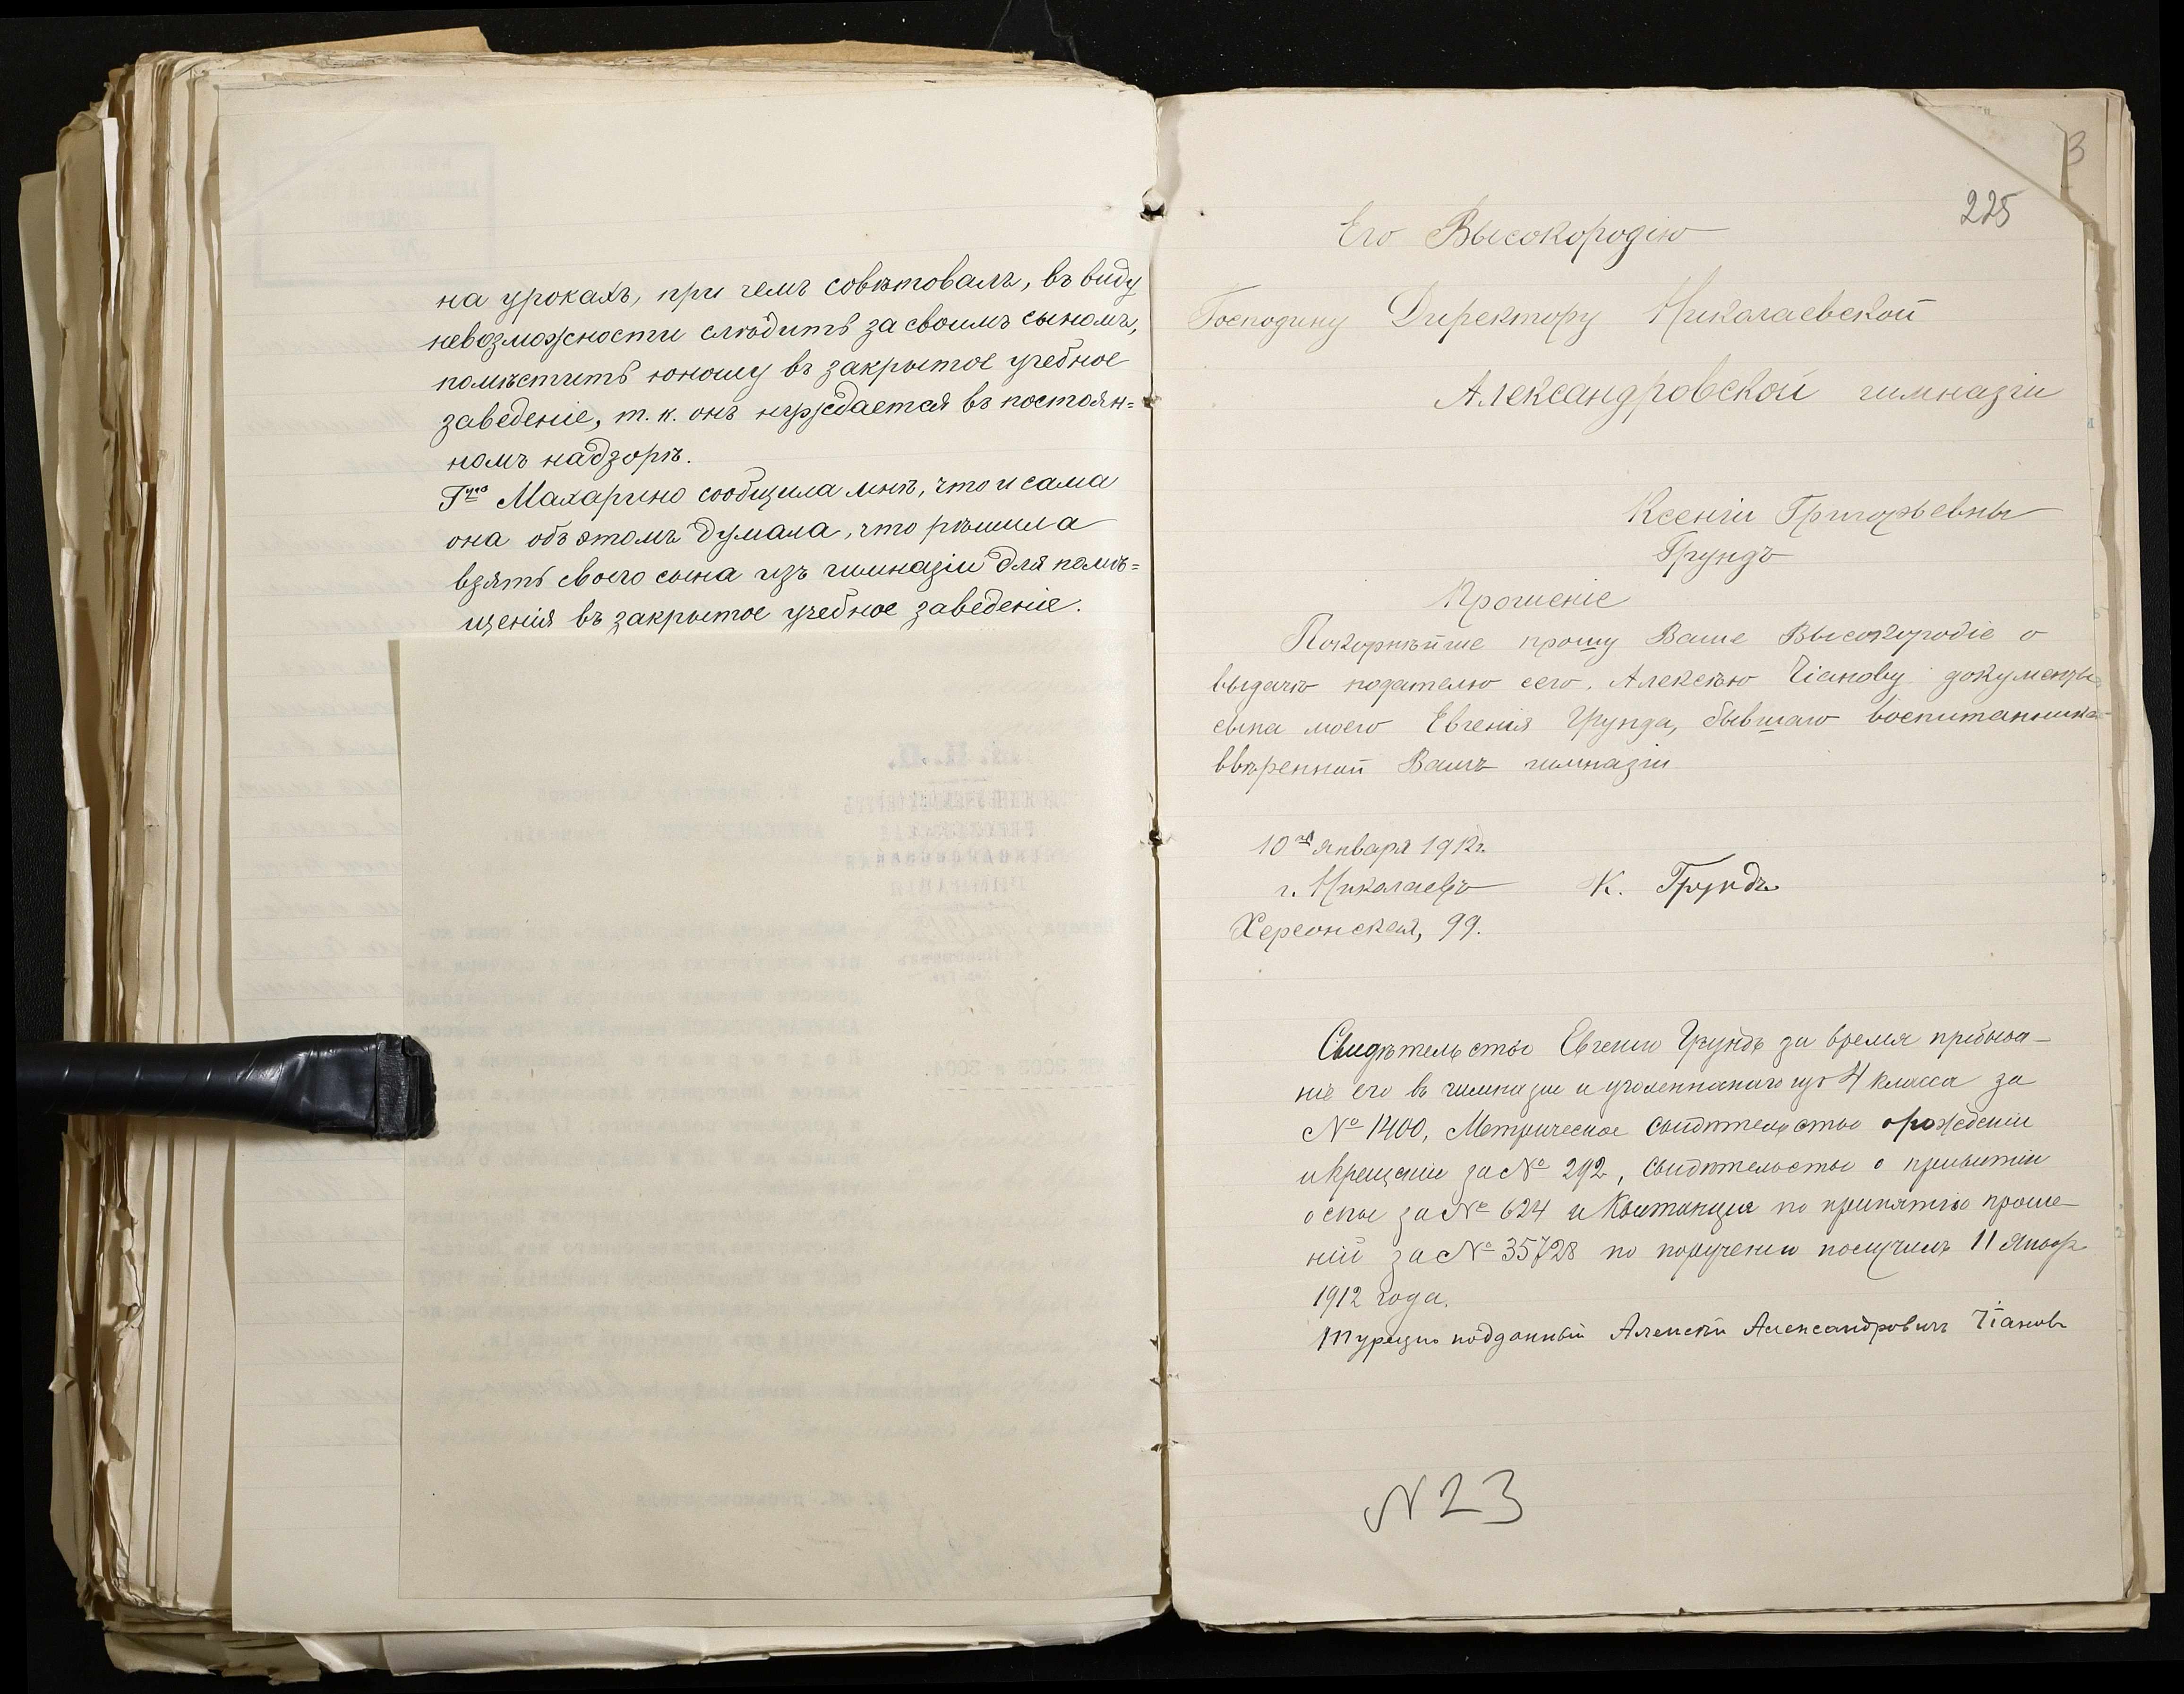 на урокахъ, при чемъ совѣтовалъ, въ виду
невозможности слѣдить за своимъ сыномъ,
помѣстить юношу въ закрытое учебное
заведеніе, т. к. онъ нуждается въ постоян=
номъ надзорѣ.
Г-жа Махарино сообщила мнѣ, что и сама
она объ этомъ думала, что рѣшила
взять своего сына изъ гимназіи для помѣ=
щенія въ закрытое учебное заведеніе.
225
Его Высокородію
Господину Директору Николаевской
Александровской гимназіи
Ксеніи Григорьевны
Грундъ
Прошеніе
Покорнѣйше прошу Ваше Высокородіе о
выдачѣ подателю сего, Алексѣю Чіанову документы
сына моего Евгенія Грунда, бывшаго воспитанника
ввѣренной Вамъ гимназіи
10го января 1912г.
г. Николаевъ К. Грундъ
Херсонская, 99.
Свидѣтельство Евгенію Грундъ за время пребыва-
ніе его въ гимназіи и уволеннаго изъ 4 класса за
№ 1400, Метрическое свидѣтельство о рожденіи
и крещеніи за № 292, свидѣтельство о привитіи
оспы за № 624 и Квитанція по принятію проше-
ній за № 35728 по порученію получилъ 11 Января
1912 года.
Турецко подданный Алексѣй Александровичъ Чіановъ
N 23